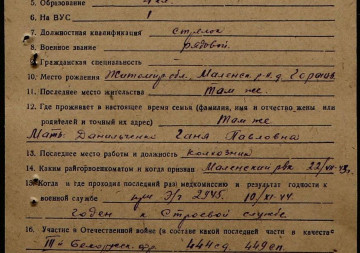 5. Образование 4 кл.
6. На ВУС 1
7. Должностная квалификация стрелок
8. Военное звание рядовой.
9. Гражданская специальность —
10. Место рождения Житомир обл., Маленск р-н, д.
11. Последнее место жительства Там же.
12. Где проживает в настоящее время семья (фамилия, имя и отчество жены или
родителей и точный их адрес) Там же
Мать: Данильченко Ганя Павловна
13. Последнее место работы и должность колхозник
14. Каким райгорвоенкоматом и когда призван Маленский рвк 22/
15. Когда и где проходил последний раз медкомиссию и результат годности к
военной службе при Э/г 2945. 10/XI-44
Годен к строевой службе
16. Участие в Отечественной войне (в составе какой последней части и в качестве
444 сд. 449 сп.